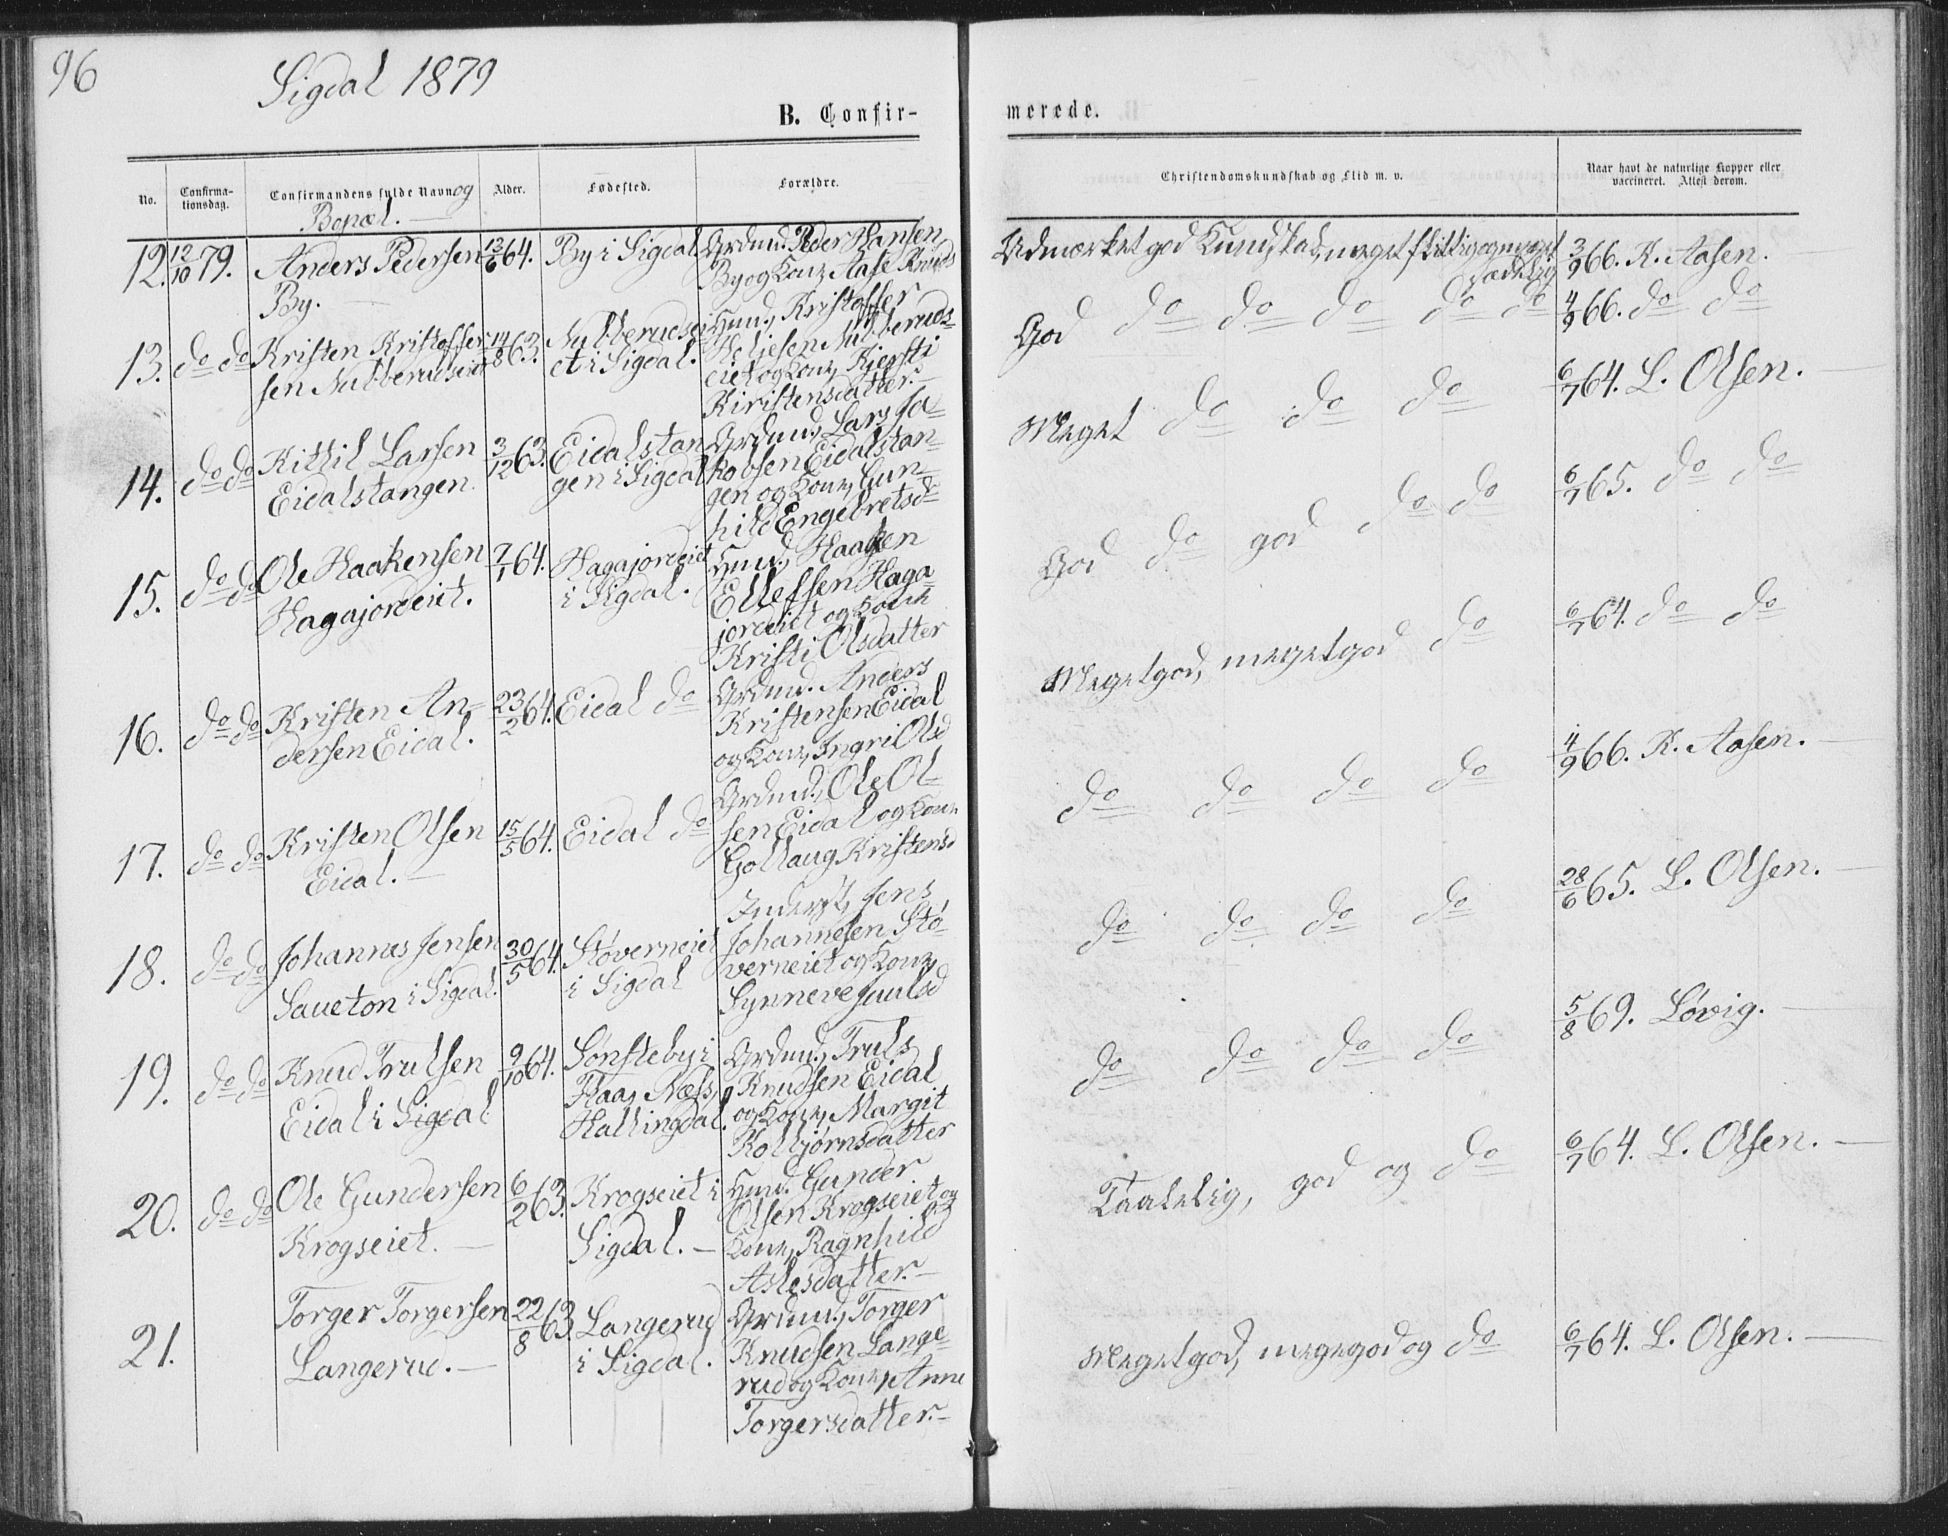 96
Sigdal 1879
B. Confirmerede.
No.
Confirma-
tionsdag.
Confirmandens fulde Navn og
Bopæl.
Alder.
Fødested.
Forældre.
Christendomskundskab og Flid m. v.
Naar havt de naturlige Kopper eller
vaccineret. Attest derom.
12. 12/10 79. Anders Pedersen 13/6 64. By i Sigdal Grdmd. Peder Hansen
By. By og Kone Aase Knuds
Udmærket god Kundskab, meget flittig og meget
sædelig
3/9 66. K. Aasen.
13. do do Kristen Kristoffer- 14/8 63. Nubberudsei- Hmd. Kristoffer
sen Nubberudseiet et i Sigdal. Helgesen Nubberuds-
eiet og Kone Kjersti
Kiristensdatter.
God do do do do do 4/9 66. do do
14. do do Kittil Larsen 3/12 63. Eidalstan Grdmd. Lars Ja-
Eidalstangen gen i Sigdal kobsen Eidalstan-
gen og Kone Gun-
hild Engebretsd
Meget do do do 6/7 64. L. Olsen.
15. do do Ole Haakensen 7/1 64. Hagajordeiet Hmd. Haaken
Hagajordeiet. i Sigdal. Ellefsen Haga-
jordeiet og Kone
Kristi Olsdatter
God do god do do 6/7 65. do do
16. do do Kristen An- 23/2 64. Eidal do Grdmd. Anders
dersen Eidal. Kristensen Eidal
og Kone Ingri Olsd
Meget god, meget god do 6/7 64. do do
17. do do Kristen Olsen 15/5 64. Eidal do Grdmd. Ole Ol-
Eidal. sen Eidal og Kone
Gollaug Kristensd
do do do do 4/9 66. K. Aasen.
18. do do Johannes Jensen 30/5 64. Støverneiet Inderst Jens
Saueton i Sigdal. i Sigdal Johannesen Stø-
verneiet og Kone
Synneve Juulsd
do do do do 28/6 65. L. Olsen.
19. do do Knud Trulsen 9/10 64. Sønsteby i Grdmd. Truls
Eidal i Sigdal Flaa, Næss, Knudsen Eidal
Hallingdal. og Kone Margit
Kolbjørnsdatter
do do do do 5/8 69. Løvig.
20. do do Ole Gundersen 6/2 63. Krogseiet i Hmd. Gunder
Krogseiet. Sigdal. Olsen Krogseiet og
Kone Ragnhild
Aslesdatter.
Taalelig, god og do 6/7 64. L. Olsen.
21. Torger Torgersen 22/8 63. Langerud Grdmd. Torger
Langerud. i Sigdal. Knudsen Lange-
rud og Kone Anne
Torgersdatter.
Meget god, mege god og do 6/7 64. L. Olsen.